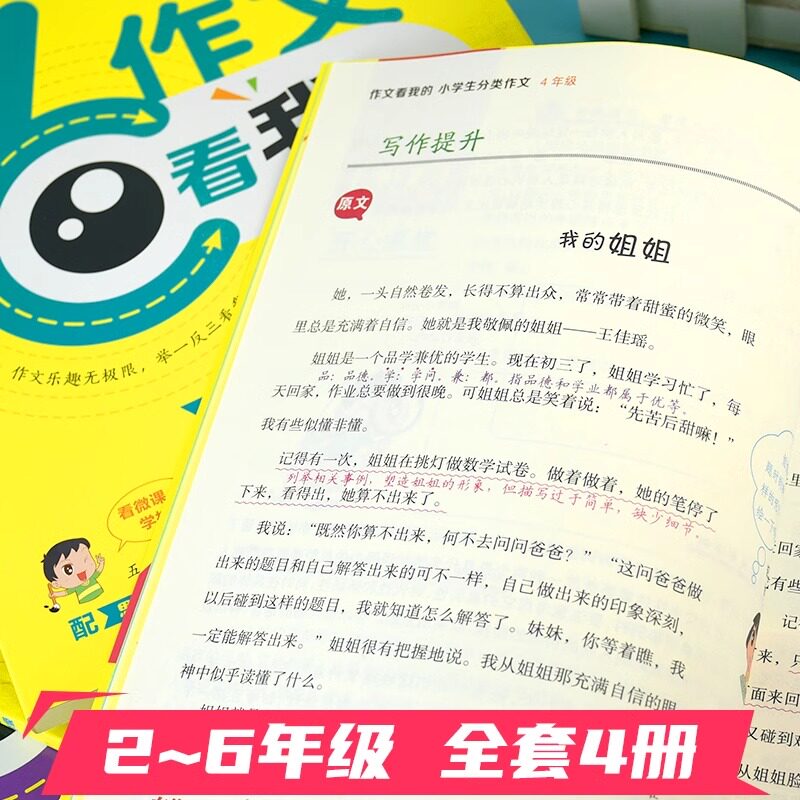 作文
看我
作文乐趣无极限，举一反三看
看微课
配
作文看我的 小学生分类作文 4年级
写作提升
原文
我的姐姐
她，一头自然卷发，长得不算出众，常常带着甜蜜的微笑，眼
里总是充满着自信。她就是我敬佩的姐姐——王佳瑶。
姐姐是一个品学兼优的学生。现在初三了，姐姐学习忙了，每
品：品德。学：学问。兼：都。指品德和学业都属于优等。
天回家，作业总要做到很晚。可姐姐总是笑着说：“先苦后甜嘛！”
我有些似懂非懂。
记得有一次，姐姐在挑灯做数学试卷。做着做着，她的笔停了
列举相关事例，塑造姐姐的形象，但描写过于简单，缺少细节。
下来，看得出，她算不出来了。
我说：“既然你算不出来，何不去问问爸爸？”“这问爸爸做
出来的题目和自己解答出来的可不一样，自己做出来的印象深刻，
以后碰到这样的题目，我就知道怎么解答了。妹妹，你等着瞧，我
一定能解答出来。”姐姐很有把握地说。我从姐姐那充满自信的眼
神中似乎读懂了什么。
里总
天回家
有些
记
来，只
面来回
又碰到难
从姐姐脸
2~6年级 全套4册